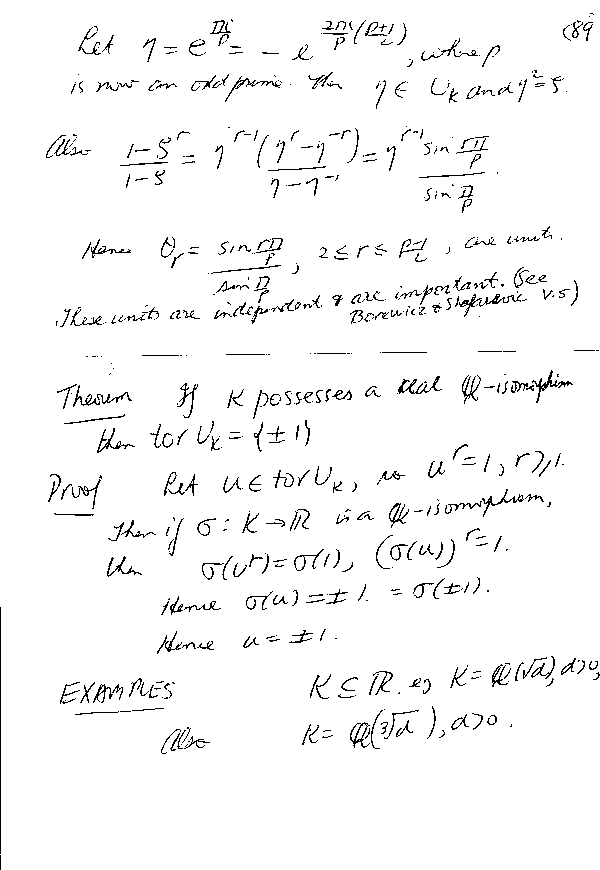 (89
Let η = e^{πi/p} = - e^{2πi/p (p+1/2)}, where p
is now an odd prime. Then η ∈ U_K and η² = ζ.
Also (1-ζ^r)/(1-ζ) = η^{r-1} (η^r - η^{-r})/(η - η^{-1}) = η^{r-1} (sin rπ/p)/(sin π/p).
Hence θ_r = (sin rπ/p)/(sin π/p), 2 ≤ r ≤ (p-1)/2, are units.
These units are independent & are important. (See
Borewicz & Shafarevic V.5)
Theorem If K possesses a real ℚ-isomorphism
then tor U_K = {±1}
Proof Let u ∈ tor U_K, so u^r = 1, r ≥ 1.
Then if σ: K → ℝ is a ℚ-isomorphism,
then σ(u^r) = σ(1), (σ(u))^r = 1.
Hence σ(u) = ±1. = σ(±1).
Hence u = ±1.
EXAMPLES K ⊆ ℝ. eg K = ℚ(√d), d>0,
Also K = ℚ(∛d), d>0.